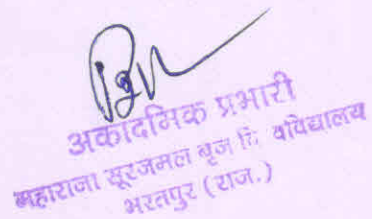 अकादमिक प्रभारी
महाराजा सूरजमल बृज वि वविद्यालय
भरतपुर (राज.)